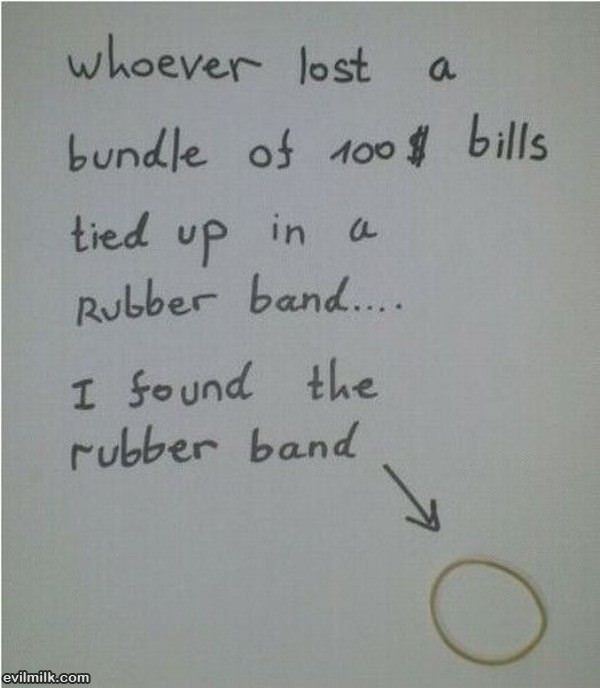 whoever lost a
bundle of 100$ bills
tied up in a
Rubber band....
I found the
rubber band
evilmilk.com